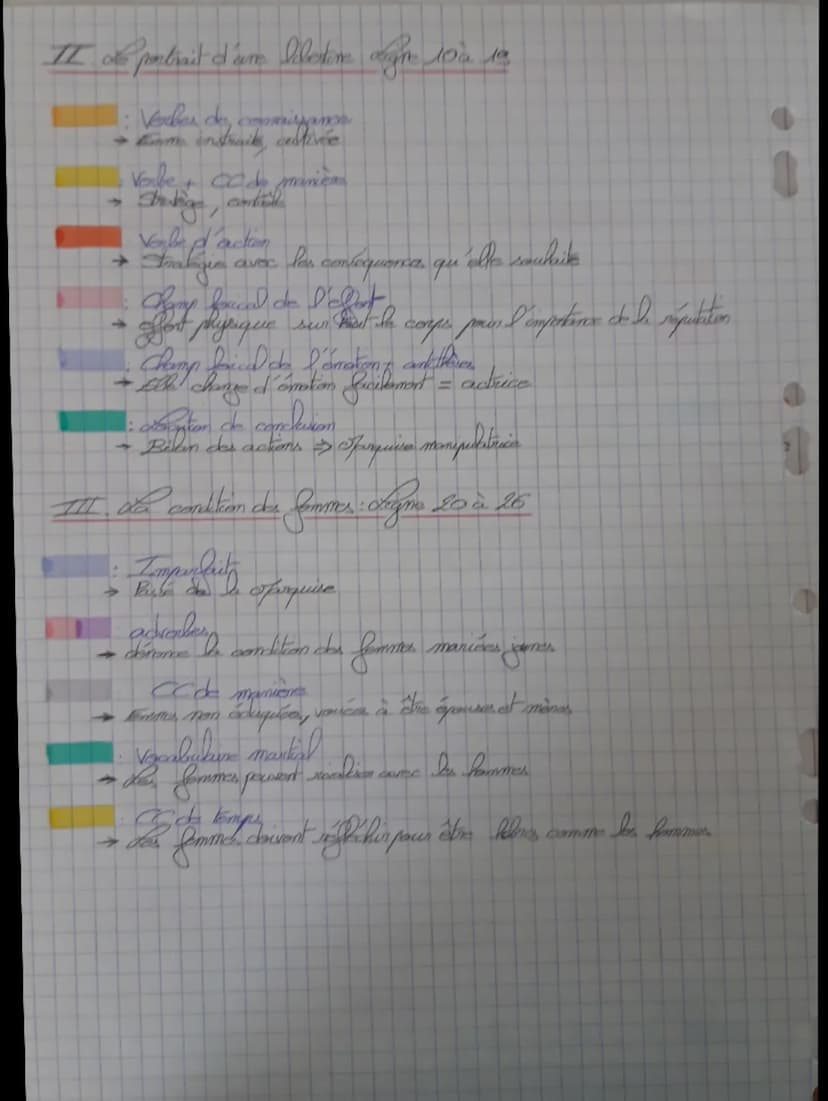 II Le portrait d'une libertine ligne 10 à 19
: Verbes de connaissance
→ Femme instruite, cultivée
: Verbe + CC de manière
→ Stratège, contrôle
Verbe d'action
→ Stratégie avec les conséquences qu'elle souhaite
: Champ lexical de l'effort
→ effort physique sur tout le corps pour l'importance de la réputation
: Champ lexical de l'émotion + antithèse
→ Elle change d'émotion facilement = actrice
: de conclusion
→ Bilan des actions ⇒ Marquise manipulatrice
III. La condition des femmes : Ligne 20 à 26
: Imparfait
→ Passé de la Marquise
adverbes
→ dénonce la condition des femmes mariées jeunes
CC de manière
→ Femmes non éduquées, vouées à être épouses et mères
: Vocabulaire martial
→ Les femmes peuvent rivaliser avec les hommes
: CC de temps
→ Les femmes doivent réfléchir pour être libres comme les hommes